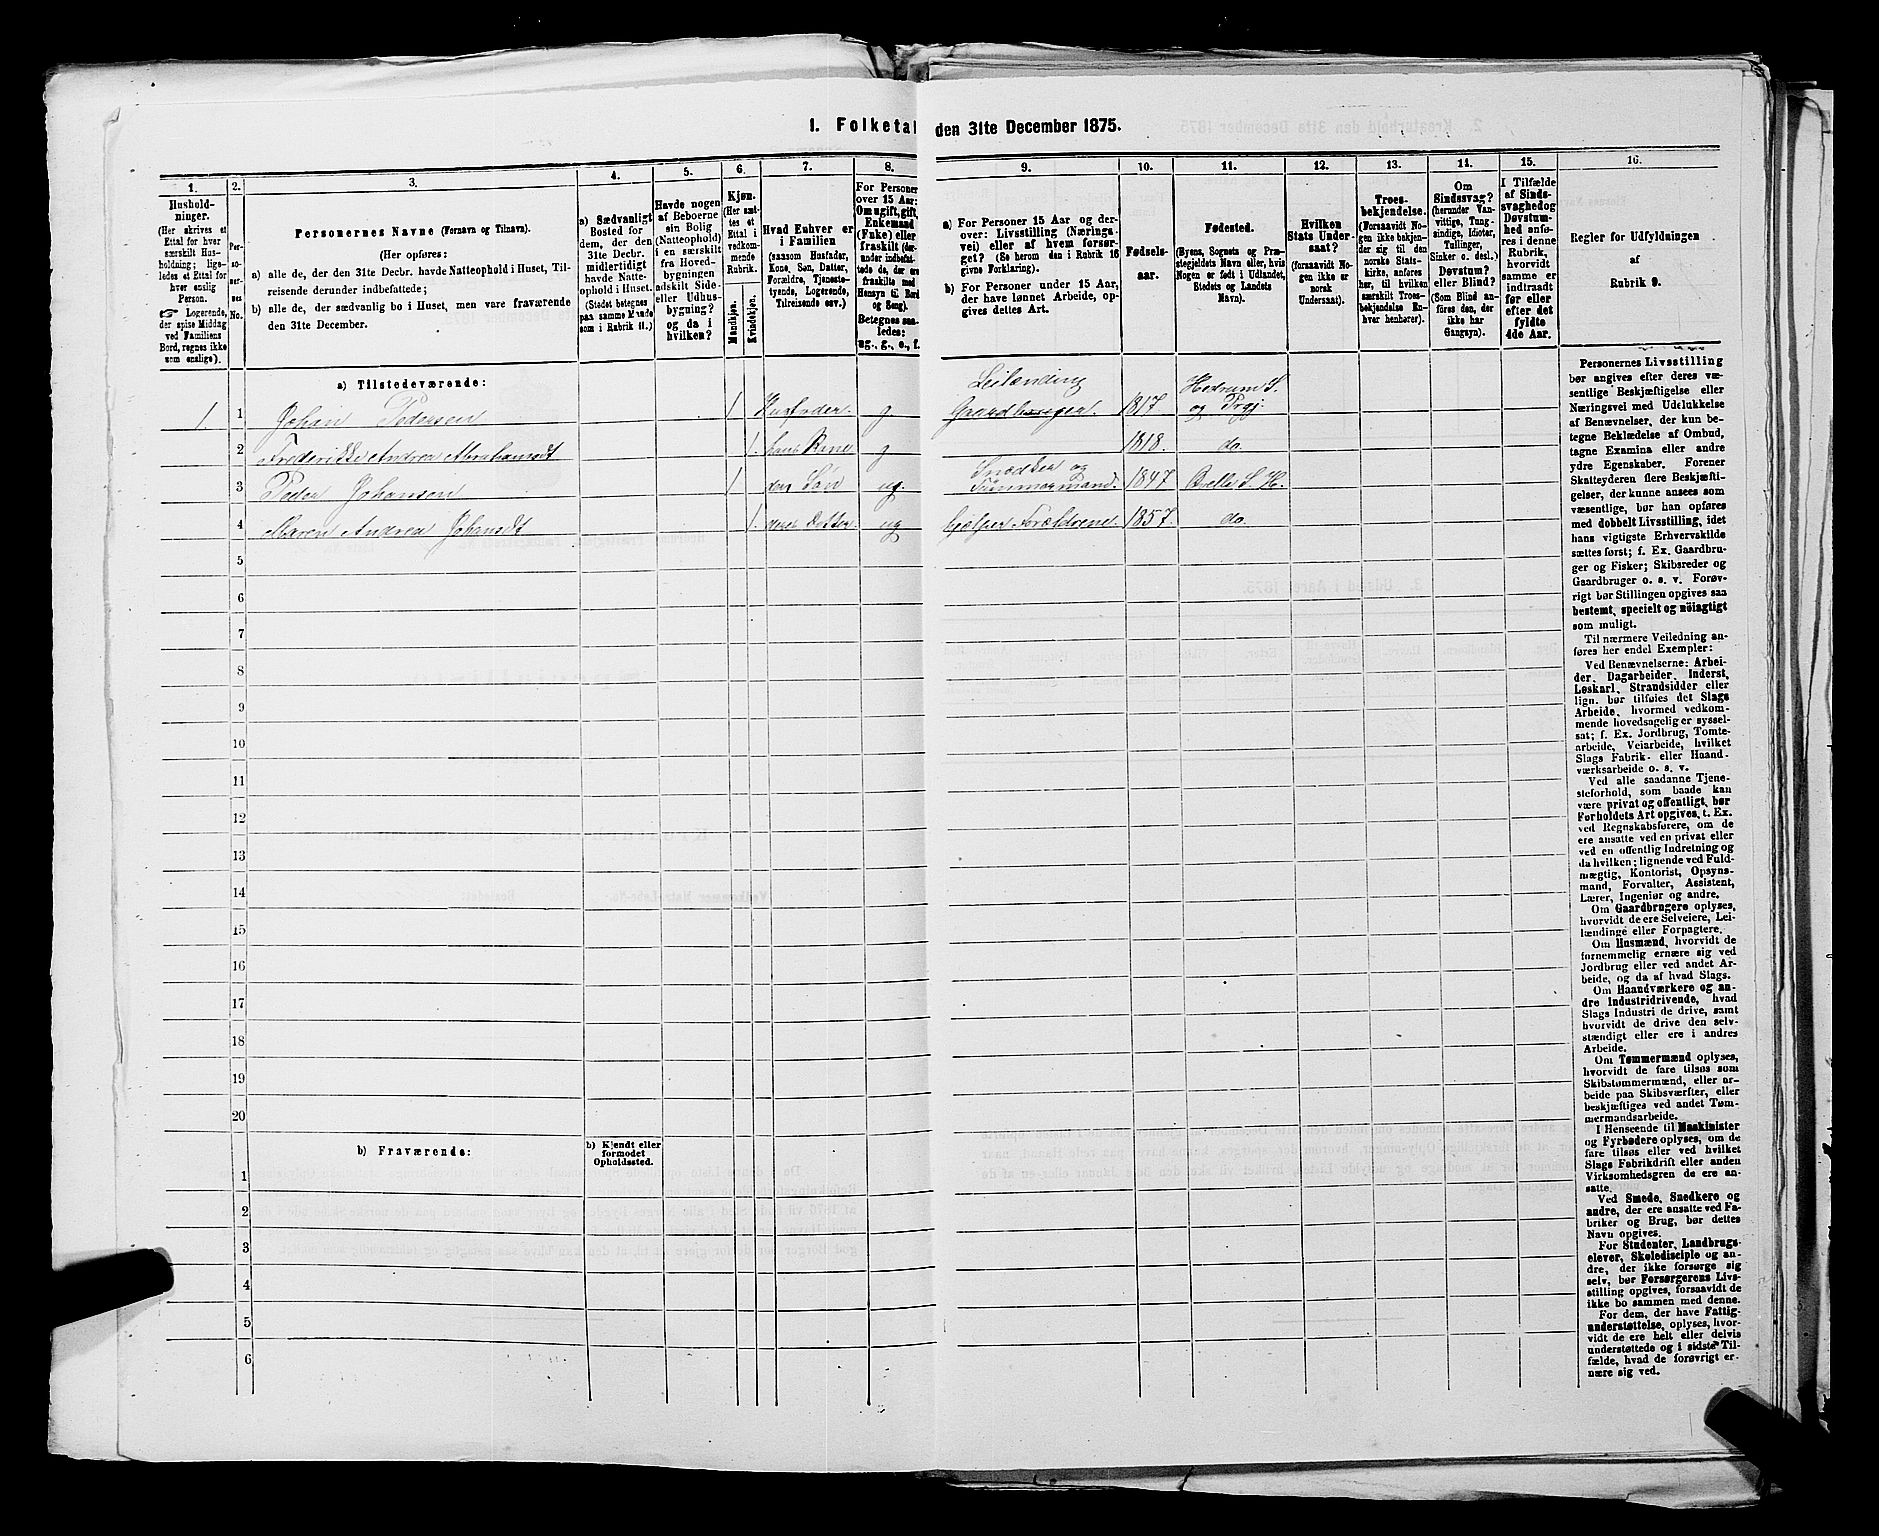 1. Folketal den 31te December 1875.
1.
Hushold-
ninger.
(Her skrives et
Ettal for hver
særskilt Hus-
holdning; lige-
ledes et Ettal for
hver enslig
Person.
☞ Logerende,
der spise Middag
ved Familiens
Bord, regnes ikke
som enslige).
2.
Per-
so-
ner-
nes
No.
3.
Personernes Navne (Fornavn og Tilnavn).
(Her opføres:
a) alle de, der den 31te Decbr. havde Natteophold i Huset, Til-
reisende derunder indbefattede;
b) alle de, der sædvanlig bo i Huset, men vare fraværende
den 31te December.
4.
a) Sædvanligt
Bosted for
dem, der den
31te Decbr.
midlertidigt
havde Natte-
ophold i Huset.
(Stedet betegnes
paa samme Maade
som i Rubrik 11.)
5.
Havde nogen
af Beboerne
sin Bolig
(Natteophold)
i en særskilt
fra Hoved-
bygningen
adskilt Side-
eller Udhus-
bygning?
og da i
hvilken?
6.
Kjøn.
(Her sæt-
tes et
Ettal i
vedkom-
mende
Rubrik.
Mandkjøn.
Kvindekjøn.
7.
Hvad Enhver er
i Familien
(saasom Husfader,
Kone, Søn, Datter,
Forældre, Tjeneste-
tyende, Logerende,
Tilreisende osv.)
8.
For Personer
over 15 Aar:
Om ugift, gift,
Enkemand
(Enke) eller
fraskilt (der-
under indbefat-
tede de, der ere
fraskilte med
Hensyn til Bord
og Seng).
Betegnes saa-
ledes:
ug., g., e., f.
9.
a) For Personer 15 Aar og der-
over: Livsstilling (Nærings-
vei) eller af hvem forsør-
get? (Se herom den i Rubrik 16
givne Forklaring).
b) For Personer under 15 Aar,
der have lønnet Arbeide, op-
gives dettes Art.
10.
Fødsels-
aar.
11.
Fødested.
(Byens, Sognets og Præ-
stegjeldets Navn eller, hvis
Nogen er født i Udlandet,
Stedets og Landets
Navn).
12.
Hvilken
Stats Under-
saat?
(forsaavidt No-
gen ikke er
norsk
Undersaat).
13.
Troes-
bekjendelse.
(Forsaavidt No-
gen ikke bekjen-
der sig til den
norske Stats-
kirke, anføres
her, til hvilken
særskilt Troes-
bekjendelse En-
hver henhører).
14.
Om
Sindssvag?
(herunder Van-
vittige, Tung-
sindige, Idioter,
Tullinger,
Sinker o. desl.)
Døvstum?
eller Blind?
(Som Blind an-
føres den, der
ikke har
Gangsyn).
15.
I Tilfælde
af Sinds-
svaghed og
Døvstum-
hed anfø-
res i denne
Rubrik,
hvorvidt
samme er
indtraadt
før eller
efter det
fyldte
4de Aar.
16.
Regler for Udfyldningen
af
Rubrik 9.
a) Tilstedeværende:
1 1 Johan Pedersen 1 Husfader. g Leilænding Gaardbruger. 1817. Hedrum S. og Prgj.
2 Frederikke Andrea Abrahamsdt 1. hans Kone g 1818. do.
3 Peder Johansen 1 deres Søn ug. Snedker og Tømmermand. 1847
4 Maren Andrea Johansdt 1. deres Datter. ug hjelper Forældrene. 1857. do.
5
6
7
8
9
10
11
12
13
14
15
16
17
18
19
20
b) Fraværende:
b) Kjendt eller
formodet
Opholdssted.
1
2
3
4
5
6
Personernes Livsstilling
bør angives efter deres væ-
sentlige Beskjæftigelse eller
Næringsvei med Udelukkelse
af Benævnelser, der kun be-
tegne Beklædelse af Ombud,
tagne Examina eller andre
ydre Egenskaber. Forener
Skatteyderen flere Beskjæfti-
gelser, der kunne ansees som
væsentlige, bør han opføres
med dobbelt Livsstilling, idet
hans vigtigste Erhvervskilde
sættes først; f. Ex. Gaardbru-
ger og Fisker; Skibsreder og
Gaardbruger o. s. v. Forøv-
rigt bør Stillingen opgives saa
bestemt, specielt og nöiagtigt
som muligt.
Til nærmere Veiledning an-
føres her endel Exempler:
Ved Benævnelserne: Arbei-
der, Dagarbeider, Inderst,
Løskarl, Strandsidder eller
lign. bør tilføies det Slags
Arbeide, hvormed vedkom-
mende hovedsagelig er syssel-
sat; f. Ex. Jordbrug, Tomte-
arbeide, Veiarbeide, hvilket
Slags Fabrik- eller Haand-
værksarbeide o. s. v.
Ved alle saadanne Tjene-
steforhold, som baade kan
være privat og offentligt, bør
Forholdets Art opgives, t. Ex.
ved Regnskabsførere, om de
ere ansatte ved en privat eller
ved en offentlig Indretning og
da hvilken; lignende ved Fuld-
mægtig, Kontorist, Opsyns-
mand, Forvalter, Assistent,
Lærer, Ingeniør og andre.
Om Gaardbrugere oplyses,
hvorvidt de ere Selveiere, Lei-
lændinge eller Forpagtere.
Om Husmænd, hvorvidt de
fornemmelig ernære sig ved
Jordbrug eller ved andet Ar-
beide, og da af hvad Slags.
Om Haandværkere og an-
dre Industridrivende, hvad
Slags Industri de drive, samt
hvorvidt de drive den selv-
stændigt eller ere i andres
Arbeide.
Om Tømmermænd oplyses,
hvorvidt de fare tilsøs som
Skibstømmermænd, eller ar-
beide paa Skibsværfter, eller
beskjæftiges ved andet Tøm-
mermandsarbeide.
I Henseende til Maskinister
og Fyrbødere oplyses, om de
fare tilsøs eller ved hvilket
Slags Fabrikdrift eller anden
Virksomhedsgren de ere an-
satte.
Ved Smede, Snedkere og
andre, der ere ansatte ved Fa-
briker og Brug, bør dettes
Navn opgives.
For Studenter, Landbrugs-
elever, Skoledisciple og an-
dre, der ikke forsørge sig
selv, bør Forsørgerens Livs-
stilling opgives, forsaavidt de
ikke bo sammen med denne.
For dem, der have Fattig-
understøttelse, oplyses, hvor-
vidt de ere helt eller delvis
understøttede og i sidste Til-
fælde, hvad de forøvrigt er-
nære sig ved.